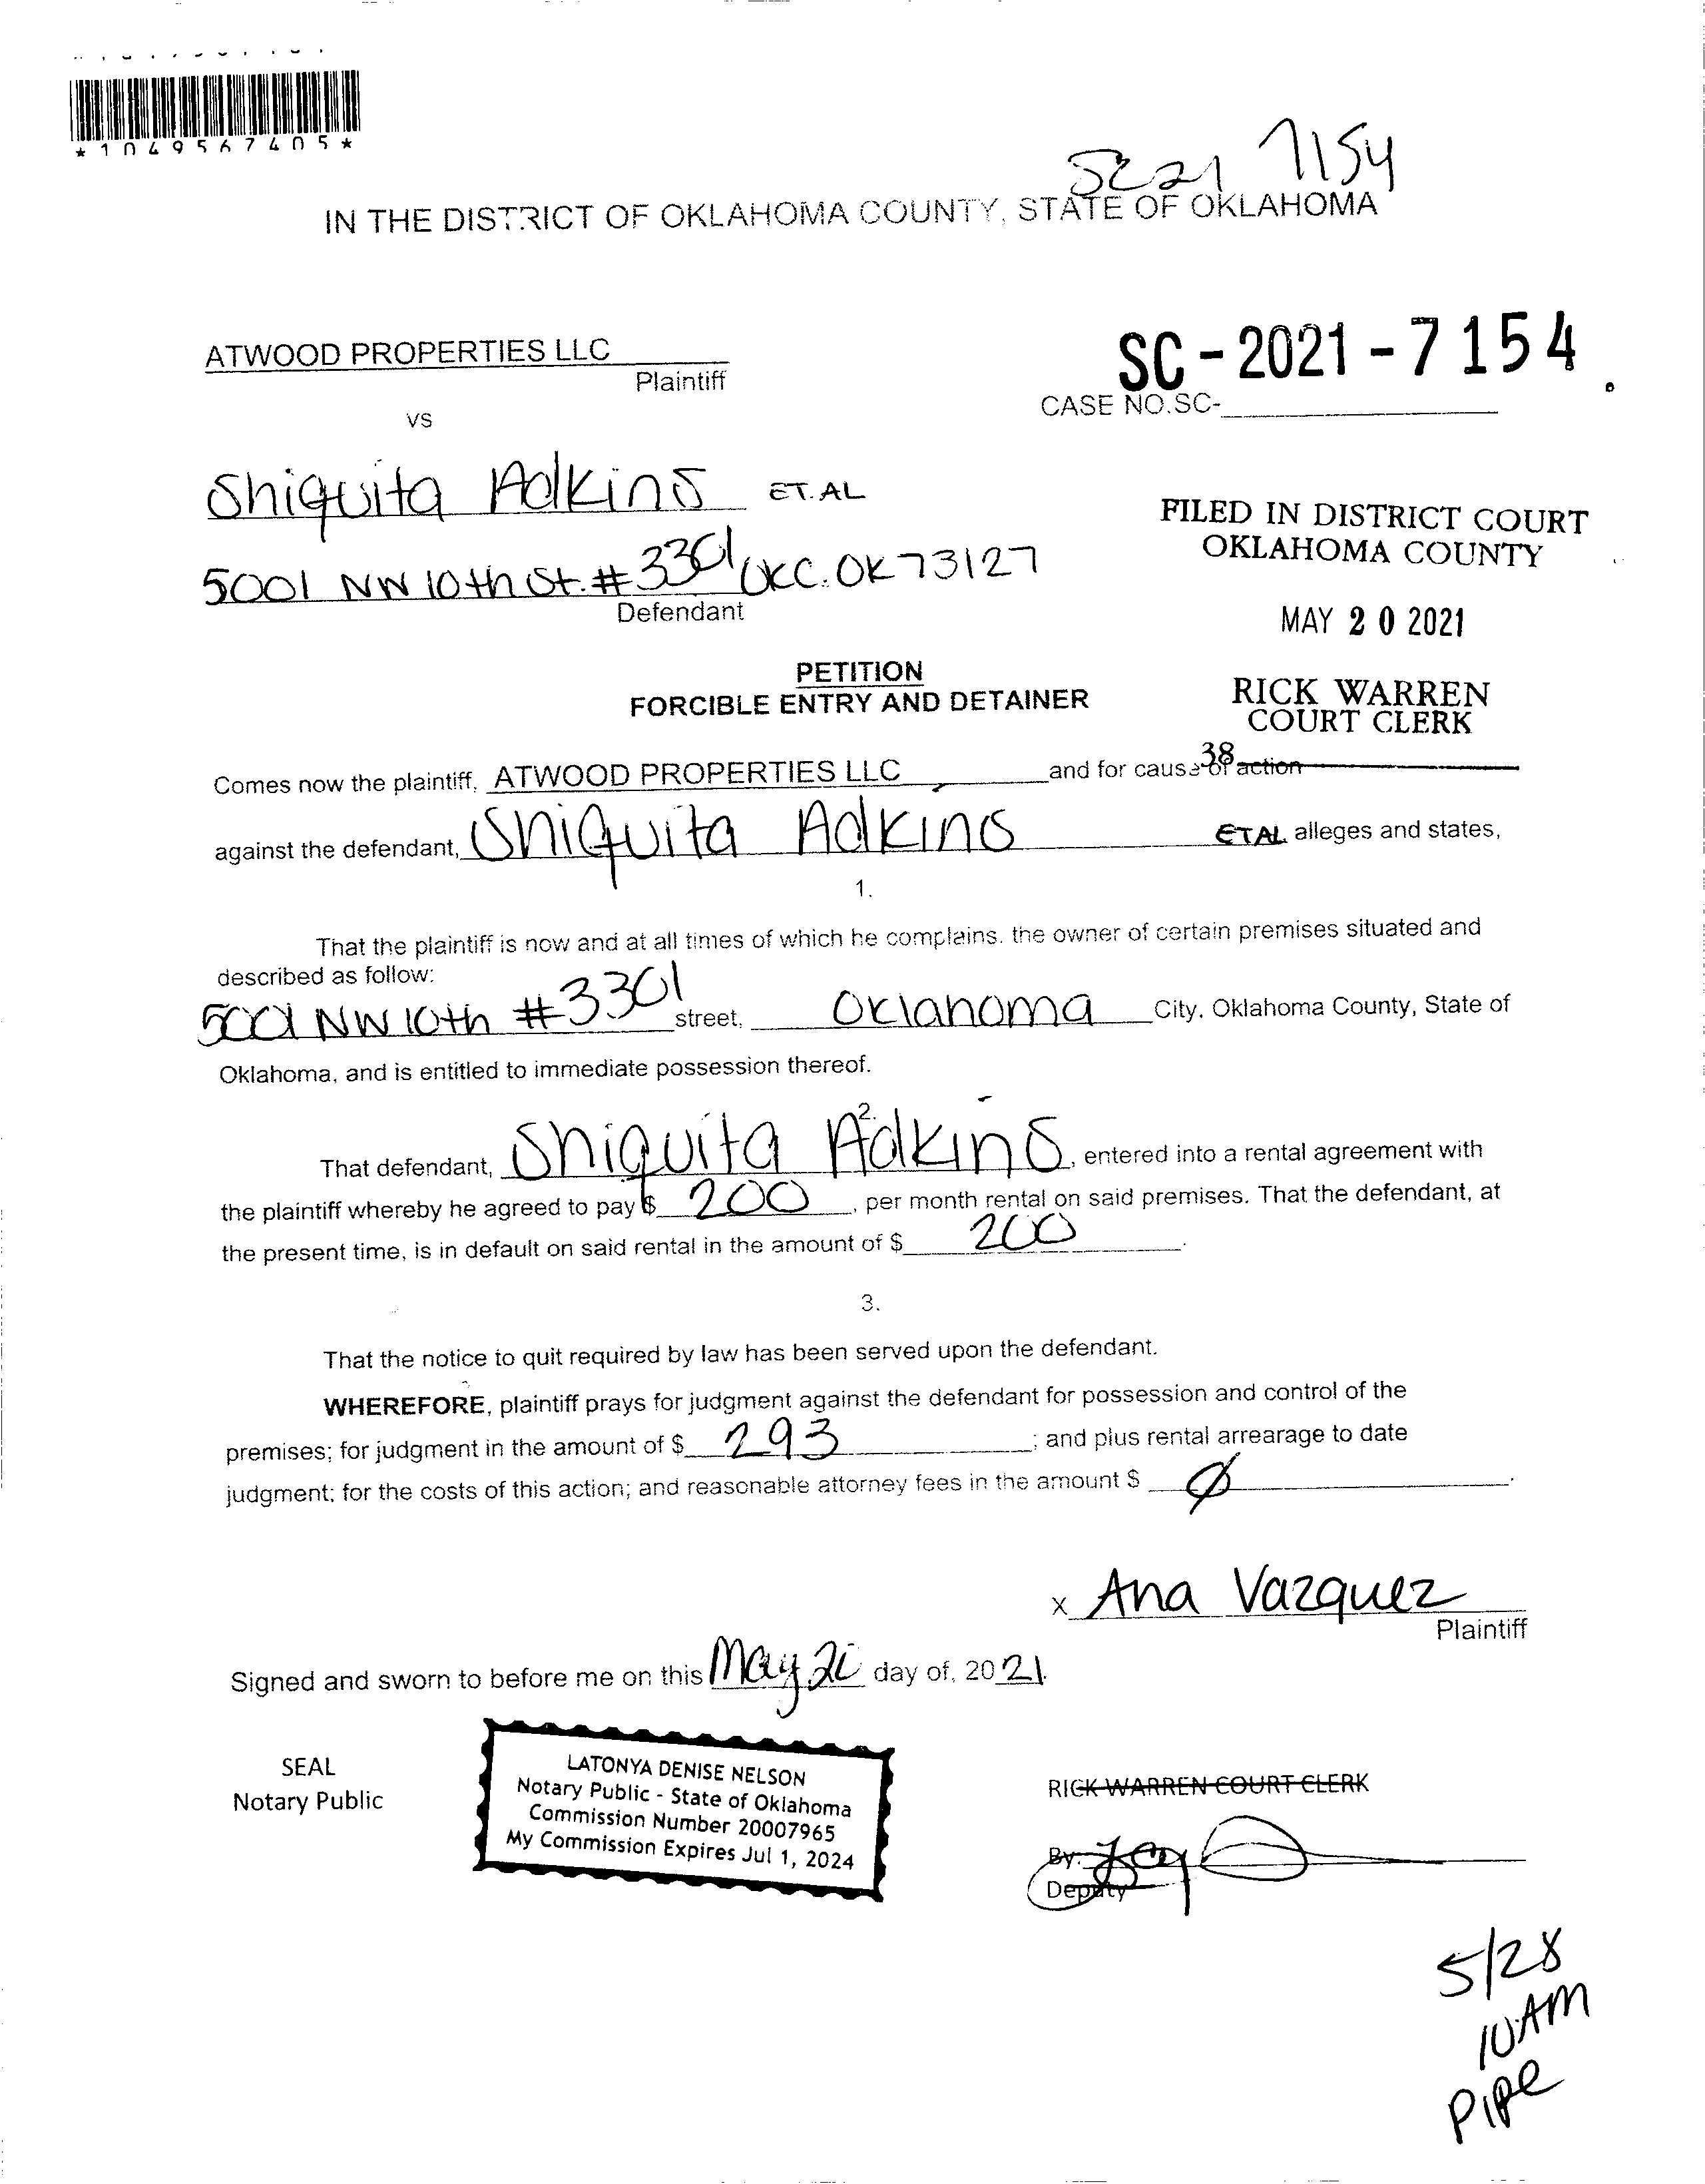 *1049567405*
SC21 7154
IN THE DISTRICT OF OKLAHOMA COUNTY, STATE OF OKLAHOMA
ATWOOD PROPERTIES LLC
Plaintiff
SC-2021-7154
CASE NO.SC-
vs
Shiquita Adkins ET.AL
5001 NW 10th St. #3301 OKC. OK 73127
Defendant
FILED IN DISTRICT COURT
OKLAHOMA COUNTY
MAY 20 2021
RICK WARREN
COURT CLERK
38
PETITION
FORCIBLE ENTRY AND DETAINER
Comes now the plaintiff, ATWOOD PROPERTIES LLC and for cause of action
against the defendant, Shiquita Adkins ETAL alleges and states,
1.
That the plaintiff is now and at all times of which he complains. the owner of certain premises situated and
described as follow:
5001 NW 10th #3301 street, Oklahoma City, Oklahoma County, State of
Oklahoma, and is entitled to immediate possession thereof.
2.
That defendant, Shiquita Adkins, entered into a rental agreement with
the plaintiff whereby he agreed to pay $ 200, per month rental on said premises. That the defendant, at
the present time, is in default on said rental in the amount of $ 200.
3.
That the notice to quit required by law has been served upon the defendant.
WHEREFORE, plaintiff prays for judgment against the defendant for possession and control of the
premises; for judgment in the amount of $ 293; and plus rental arrearage to date
judgment; for the costs of this action; and reasonable attorney fees in the amount $ Ø.
x Ana Vazquez
Plaintiff
Signed and sworn to before me on this May 20 day of, 2021.
SEAL
Notary Public
LATONYA DENISE NELSON
Notary Public - State of Oklahoma
Commission Number 20007965
My Commission Expires Jul 1, 2024
RICK WARREN COURT CLERK
By:
Deputy
5/28
10AM
Pipe